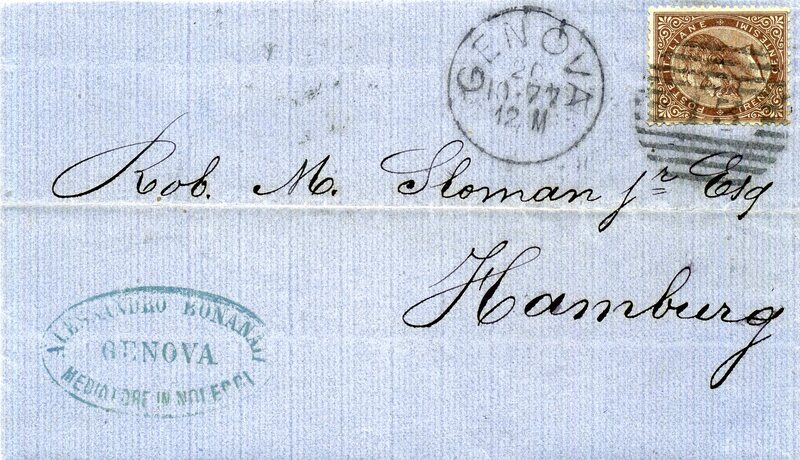 GENOVA
20
10-74
12 M
POSTE ITALIANE
TRENTA CENTESIMI
Rob. M. Sloman jr Esq
Hamburg
ALESSANDRO BONANNI
GENOVA
MEDIATORE IN NOLEGGI